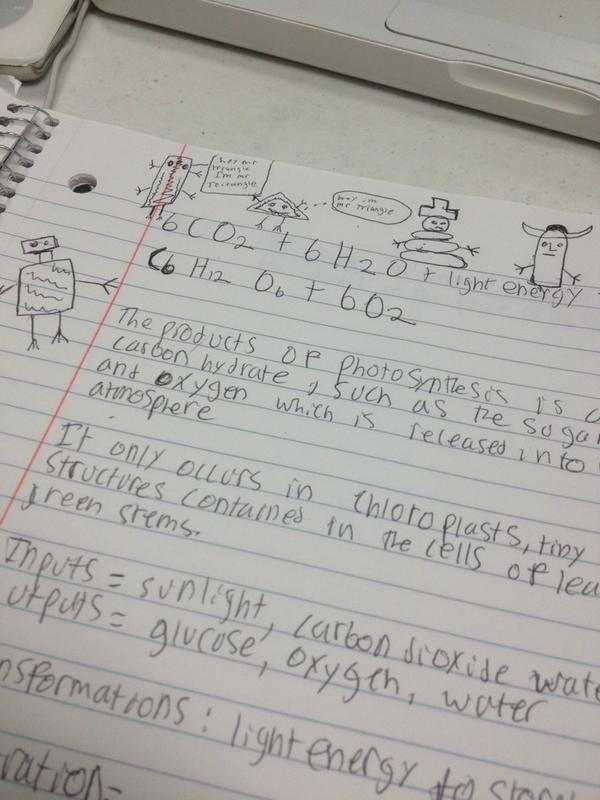 hey mr
triangle
I'm mr
rectangle
hey im
mr triangle
6 CO2 + 6 H2O + light energy
C6 H12 O6 + 6O2
The products of photosynthesis is
carbon hydrate, such as the sugar
and oxygen which is released into
atmosphere
It only occurs in chloroplasts, tiny
structures contained in the cells of
green stems.
Inputs = sunlight, carbon dioxide
utputs = glucose, oxygen, water
nsformations: light energy to
ration=